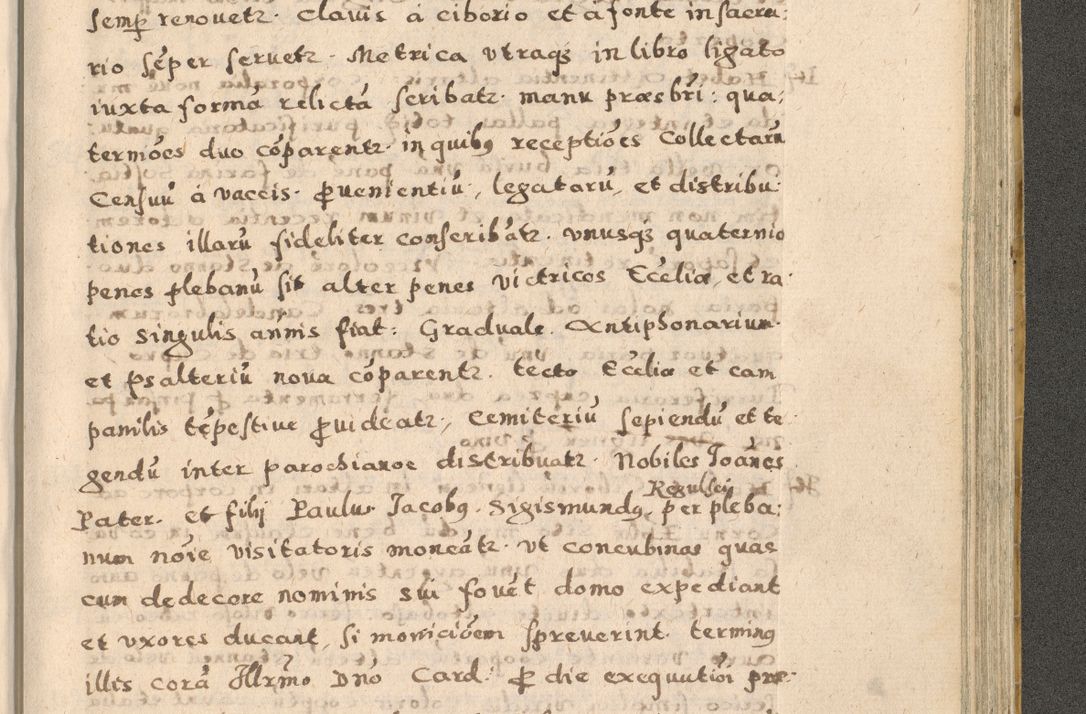 semꝑ renouetꝛ. Clauis á ciborio et á fonte in sacra:
rio sẽper seruetꝛ. Metrica vtraqꝫ in libro ligato
iuxta formã relictã scribatꝛ. manu præsbri: qua:
termões duo cõparentꝛ. in quibꝯ receptiões Collectarũ
Censuũ á vaccis. ꝓuenientiũ, legatarũ, et distribu:
tiones illarũ fideliter conseribãtꝛ. vnusqꝫ quaternio
penes plebanũ sit alter penes victricos Ecẽliæ, et ra:
tio singulis annis fiat: Graduale. Antiphonarium.
et psalteriũ nova cõparentꝛ. tecto Ecẽliæ et cam
panilis tẽpestiue ꝓuideatꝛ, Cemiteriũ sepiendũ et te:
gendũ inter parochianoe distribuatꝛ. Nobiles Joãnes
Regulscij
Pater. et filij Paulus Jacobꝯ. Sigismundꝯ. per pleba:
num noĩe visitatoris moneãtꝛ. vt concubinas quas
cum dedecore nominis sui fouẽt domo expediant
et vxores ducant, si moniciõem spreuerint. terminꝯ
illis corã Illrm̃o Dñó Card: ꝓ die exequutiõi præ: